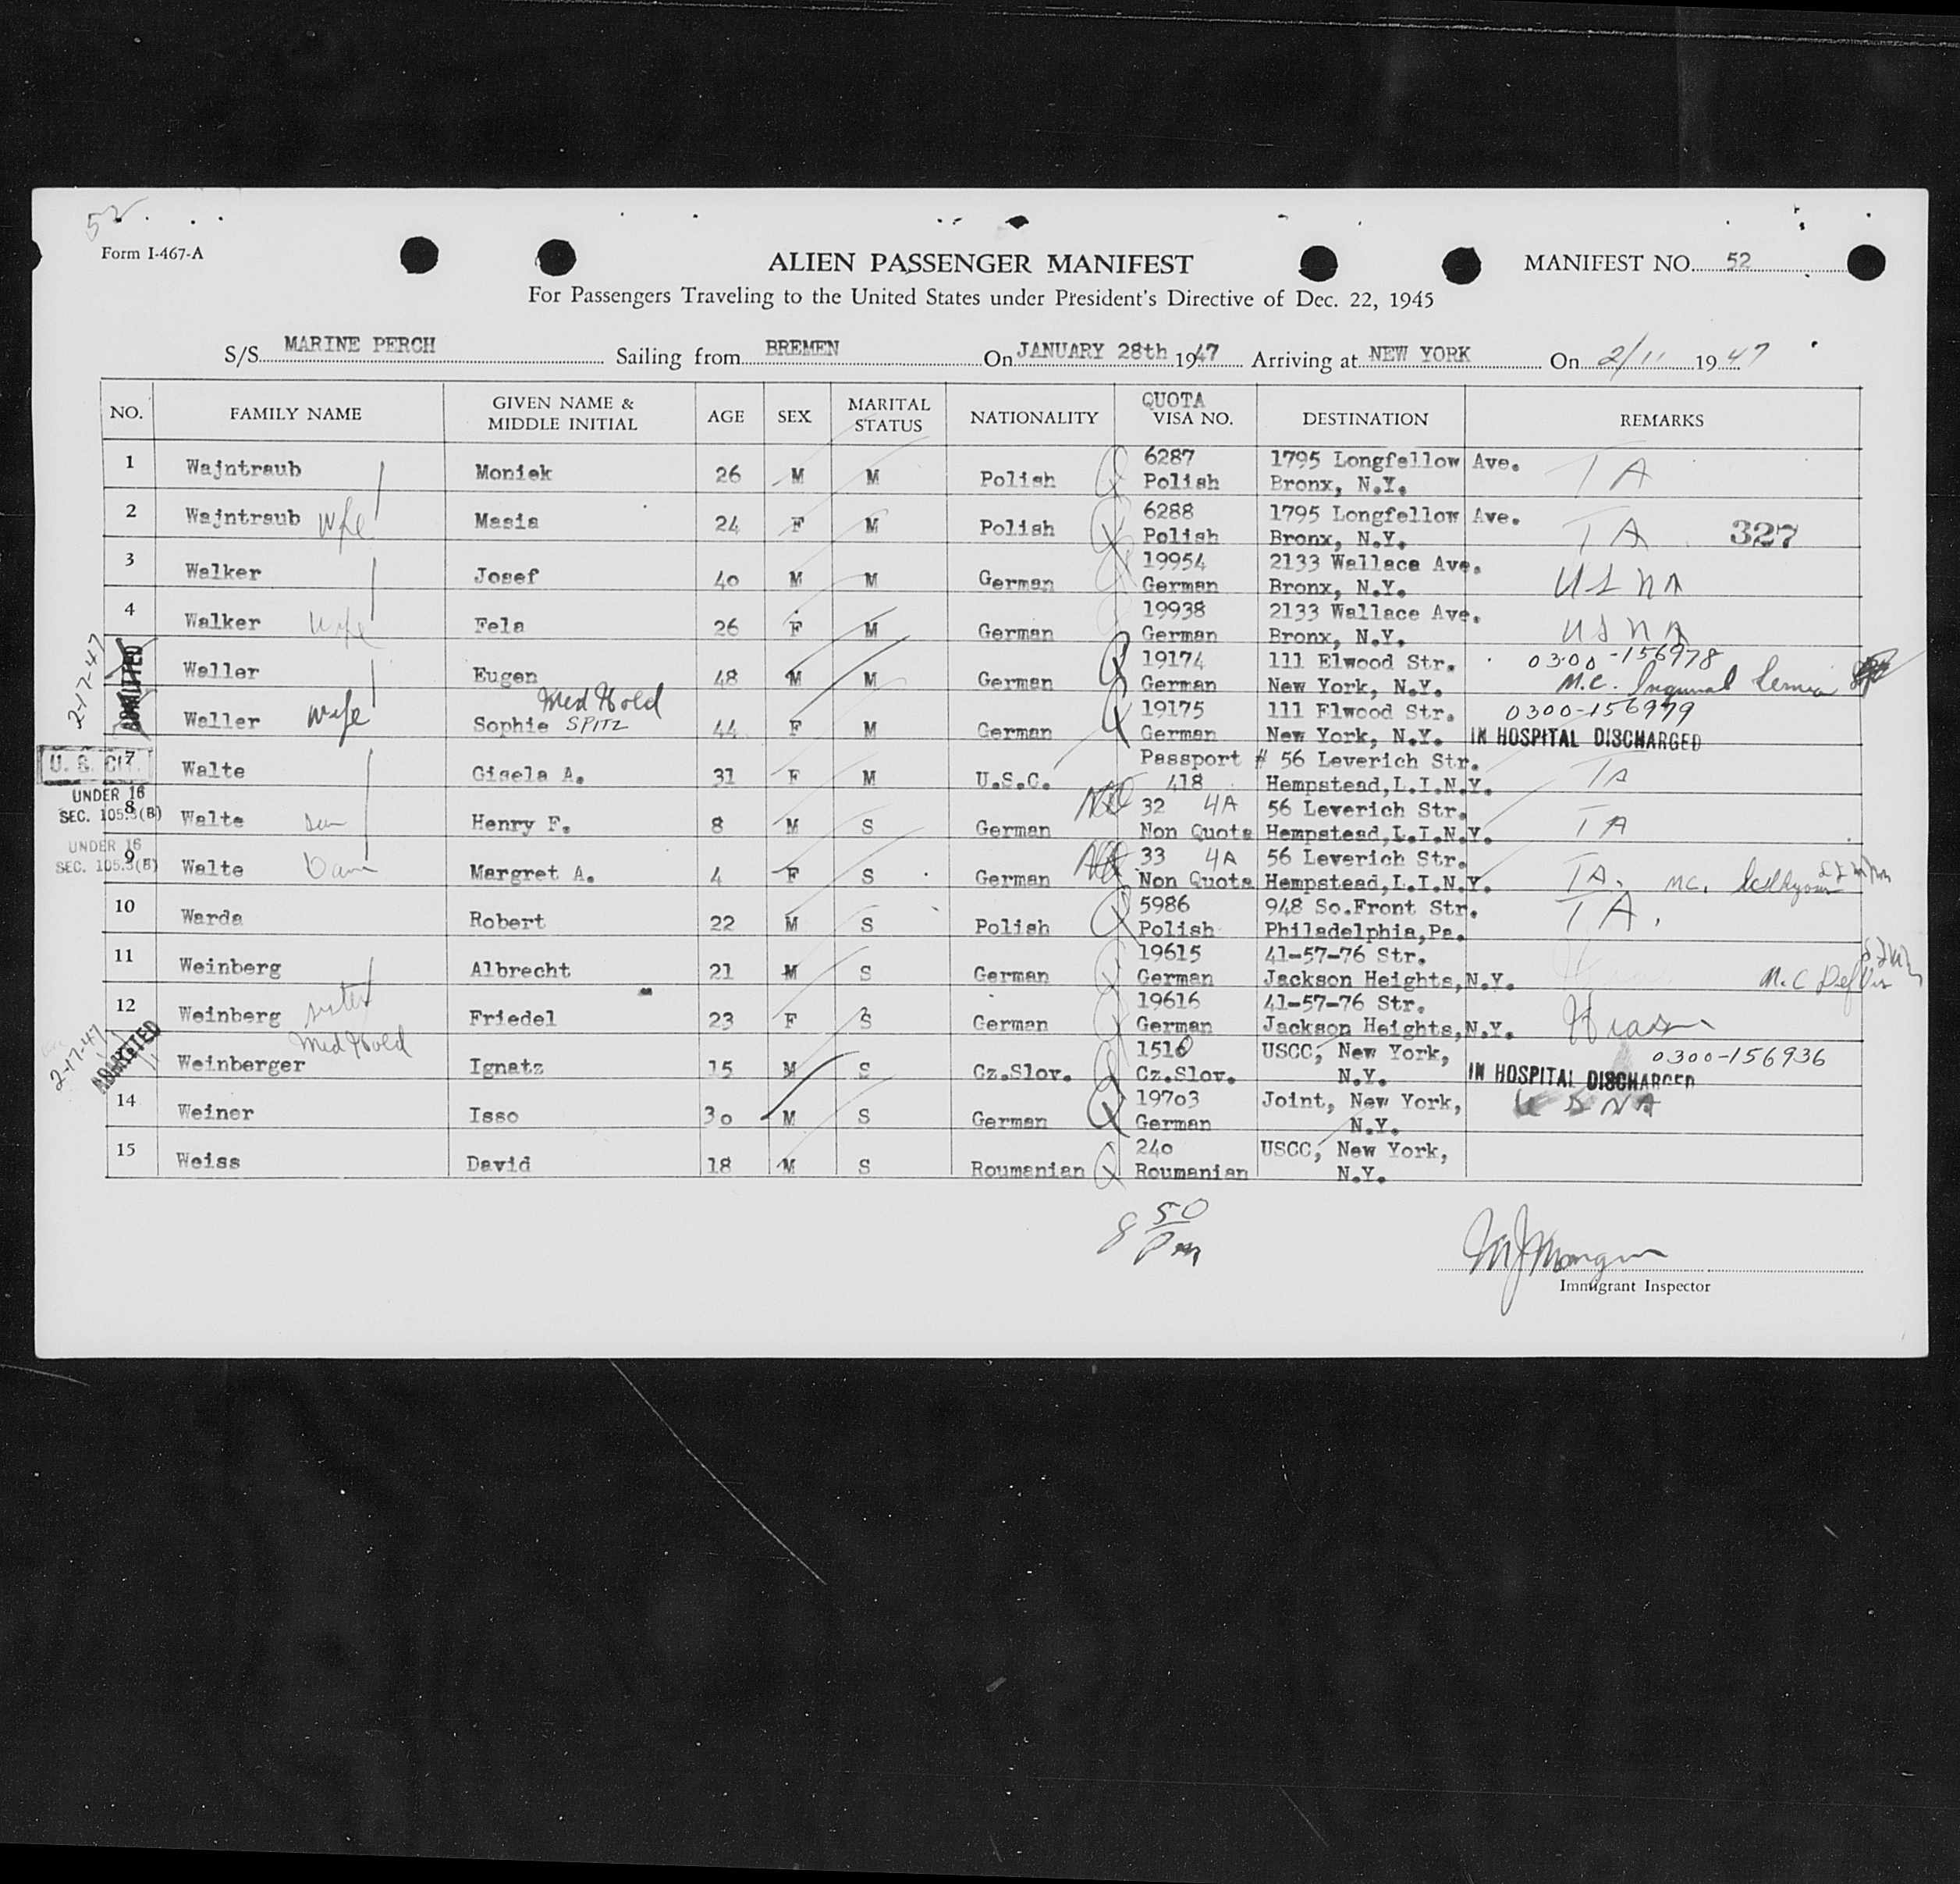 52
Form I-467-A
ALIEN PASSENGER MANIFEST
MANIFEST NO. 52
For Passengers Traveling to the United States under President's Directive of Dec. 22, 1945
S/S MARINE PERCH Sailing from BREMEN On JANUARY 28th 1947 Arriving at NEW YORK On 2/11 1947
NO. FAMILY NAME GIVEN NAME & MIDDLE INITIAL AGE SEX MARITAL STATUS NATIONALITY QUOTA VISA NO. DESTINATION REMARKS
1 Wajntraub Moniek 26 M M Polish 6287 1795 Longfellow Ave. TA
Polish Bronx, N.Y.
2 Wajntraub wife Masia 24 F M Polish 6288 1795 Longfellow Ave. TA 327
Polish Bronx, N.Y.
3 Walker Josef 40 M M German 19954 2133 Wallace Ave. USNA
German Bronx, N.Y.
4 Walker wife Fela 26 F M German 19938 2133 Wallace Ave. USNA
German Bronx, N.Y.
2-17-47 ADMITTED
Waller Eugen 48 M M German 19174 111 Elwood Str. 0300-156978
German New York, N.Y. M.C. Inguinal Hernia
Med Hold
Waller wife Sophie SPITZ 44 F M German 19175 111 Elwood Str. 0300-156979
German New York, N.Y. IN HOSPITAL DISCHARGED
U. S. CIT. 7 Walte Gisela A. 31 F M U.S.C. Passport # 56 Leverich Str. TA
418 Hempstead,L.I.N.Y.
UNDER 16
SEC. 105.3(B) 8 Walte son Henry F. 8 M S German 32 4A 56 Leverich Str. TA
Non Quota Hempstead,L.I.N.Y.
UNDER 16
SEC. 105.3(B) 9 Walte Dau Margret A. 4 F S German 33 4A 56 Leverich Str. TA. MC.
Non Quota Hempstead,L.I.N.Y.
10 Warda Robert 22 M S Polish 5986 948 So.Front Str. TA.
Polish Philadelphia,Pa.
11 Weinberg Albrecht 21 M S German 19615 41-57-76 Str. M.C Def
German Jackson Heights,N.Y.
12 Weinberg sister Friedel 23 F S German 19616 41-57-76 Str. Hias
German Jackson Heights,N.Y.
2-17-47 ADMITTED
Med Hold
Weinberger Ignatz 15 M S Cz.Slov. 1516 USCC, New York, 0300-156936
Cz.Slov. N.Y. IN HOSPITAL DISCHARGED
14 Weiner Isso 30 M S German 19703 Joint, New York, USNA
German N.Y.
15 Weiss David 18 M S Roumanian 240 USCC, New York,
Roumanian N.Y.
8 50
Pm
Immigrant Inspector